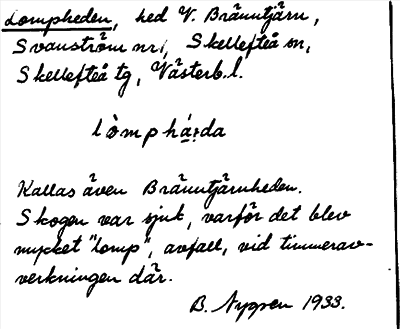 Lompheden, hed V. Bränntjärn,
Svanström nr 1, Skellefteå sn,
Skellefteå tg, Västerb. l.
Kallas även Bränntjärnheden.
Skogen var sjuk, varför det blev
mycket "lomp", avfall, vid timmerav-
verkningen där.
B. Nygren 1933.